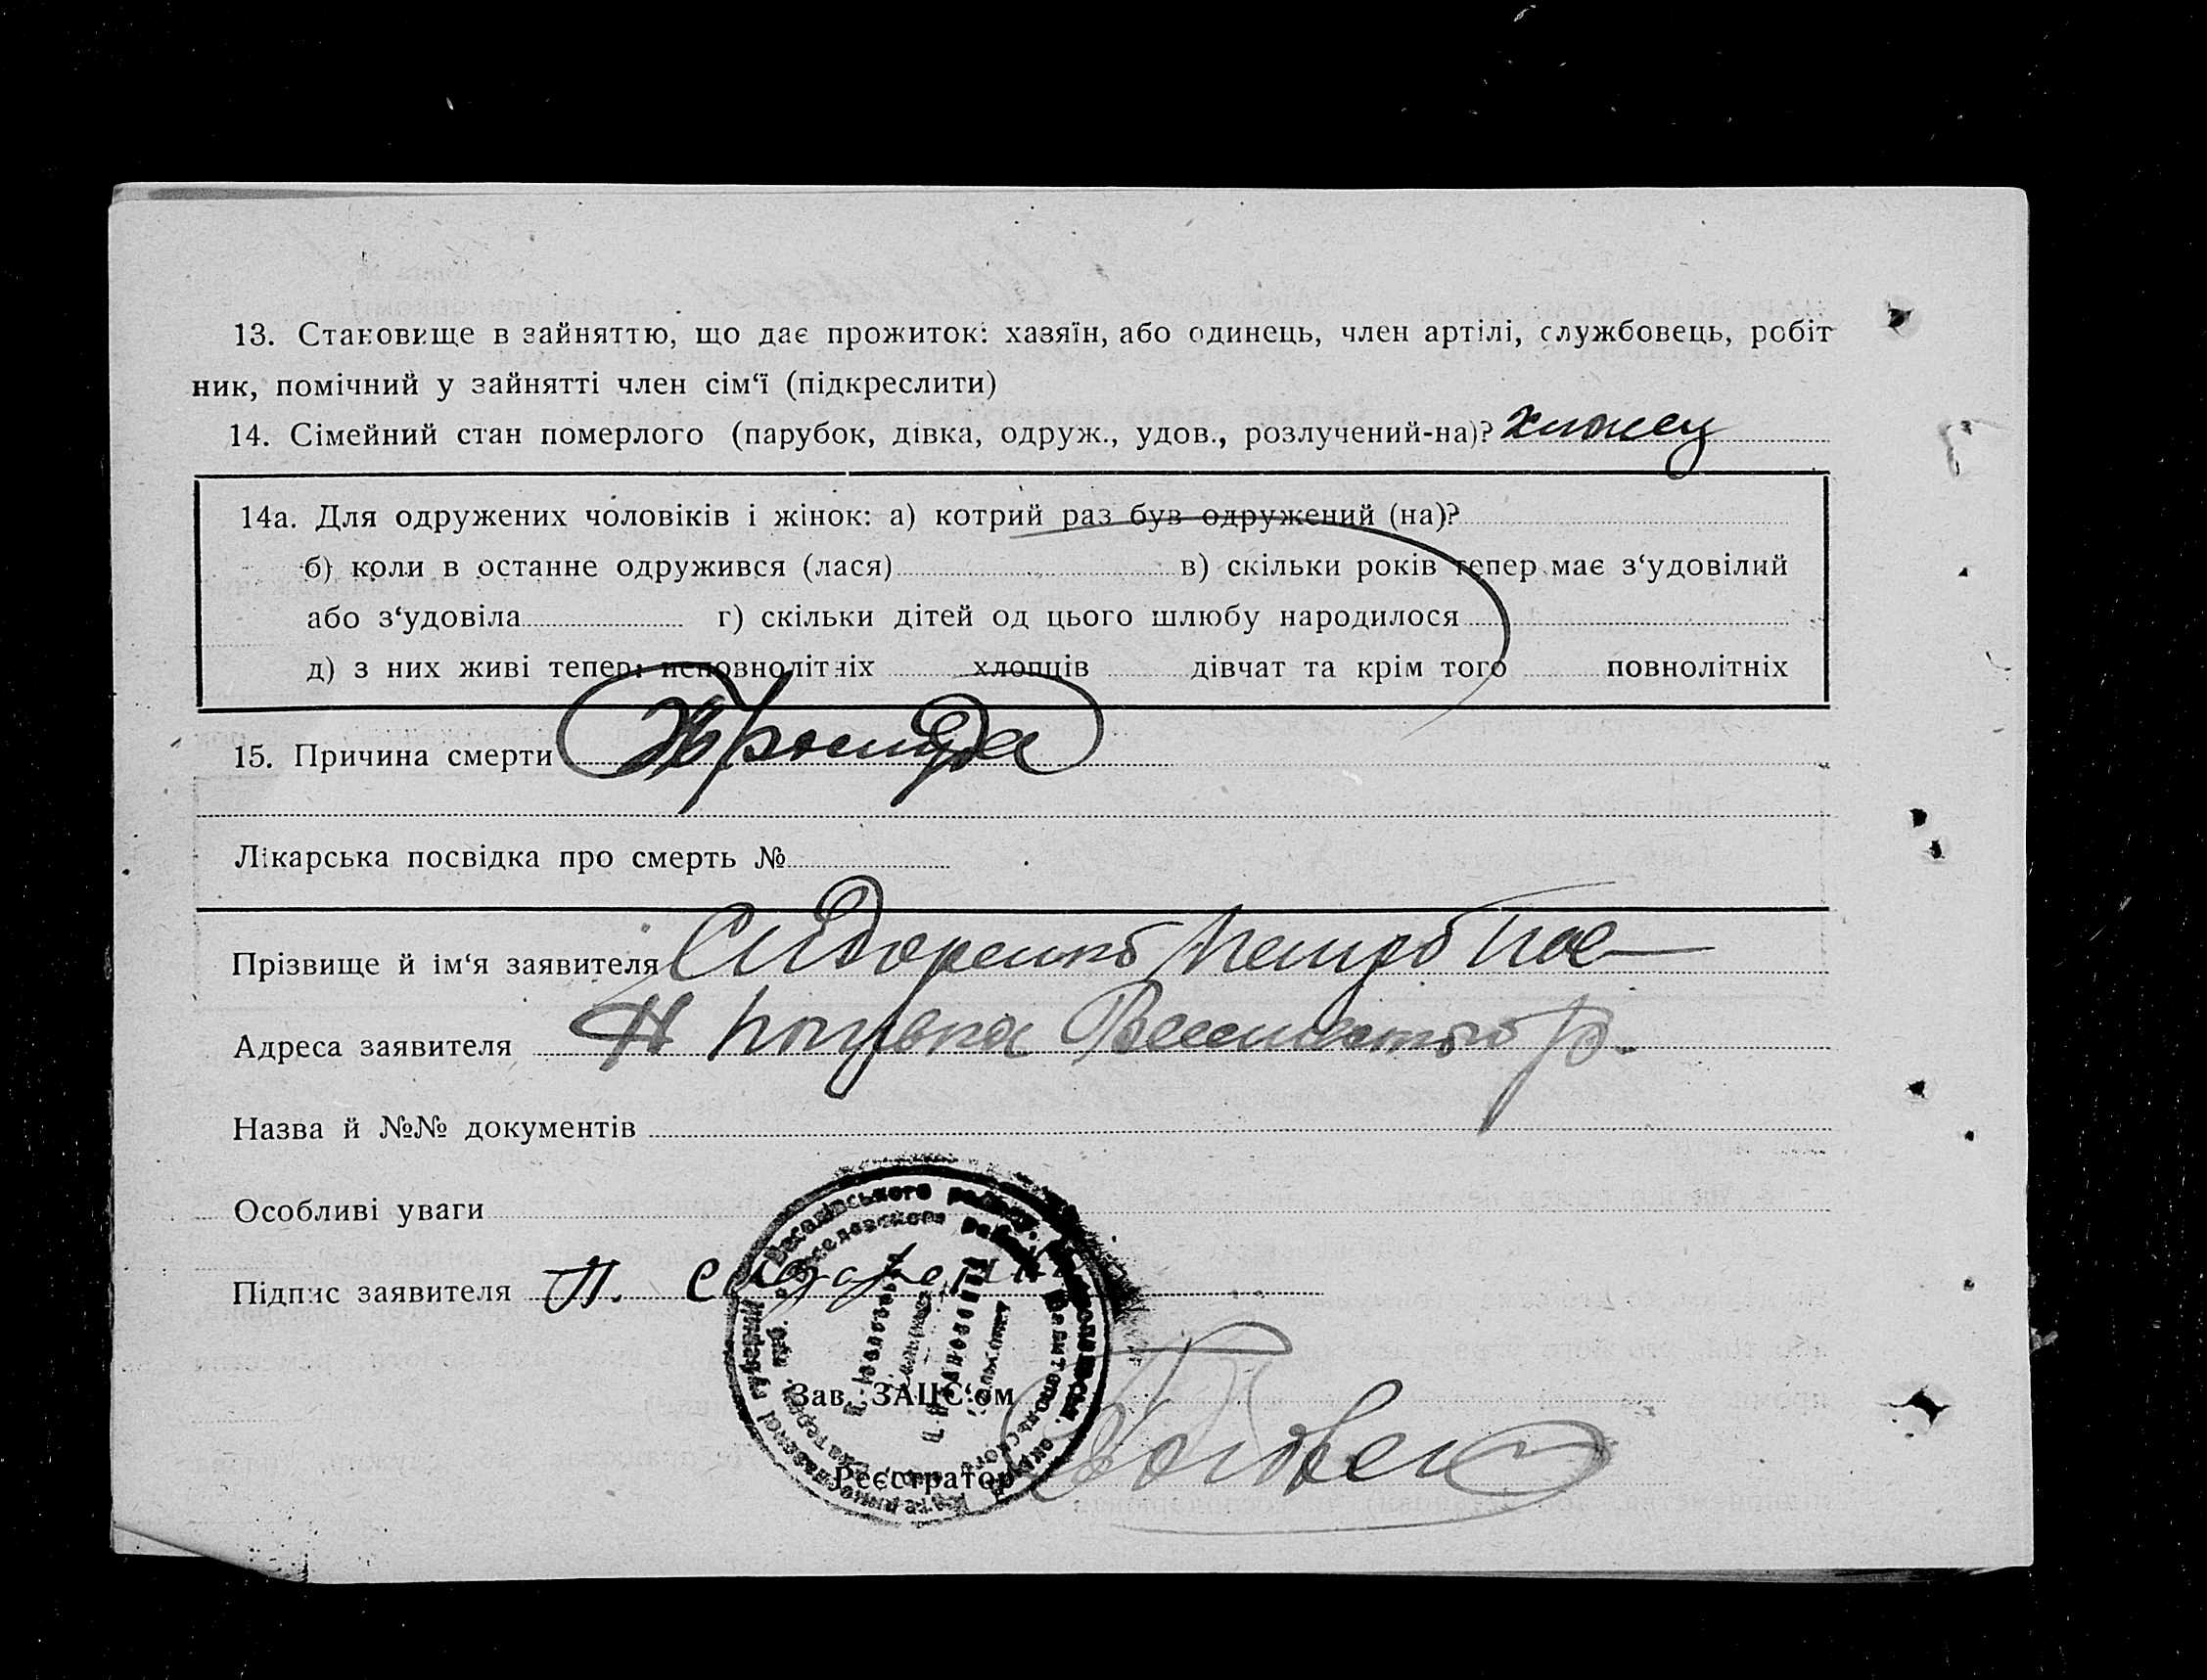 13. Становище в зайняттю, що дає прожиток: хазяїн, або одинець, член артілі, службовець, робіт
ник, помічний у зайнятті член сім‘ї (підкреслити)
14. Сімейний стан померлого (парубок, дівка, одруж., удов., розлучений-на)? хлопец
14а. Для одружених чоловіків і жінок: а) котрий раз був одружений (на)?
б) коли в останне одружився (лася) в) скільки років тепер має з‘удовілий
або з‘удовіла г) скільки дітей од цього шлюбу народилося
д) з них живі тепер: неповнолітніх хлопців дівчат та крім того повнолітніх
15. Причина смерти Простуда
Лікарська посвідка про смерть №
Прізвище й ім‘я заявителя Сидоренко Петро
Адреса заявителя
Назва й №№ документів
Особливі уваги
Підпис заявителя П. Сидоренко
Зав. ЗАЦС‘ом
Реєстратор